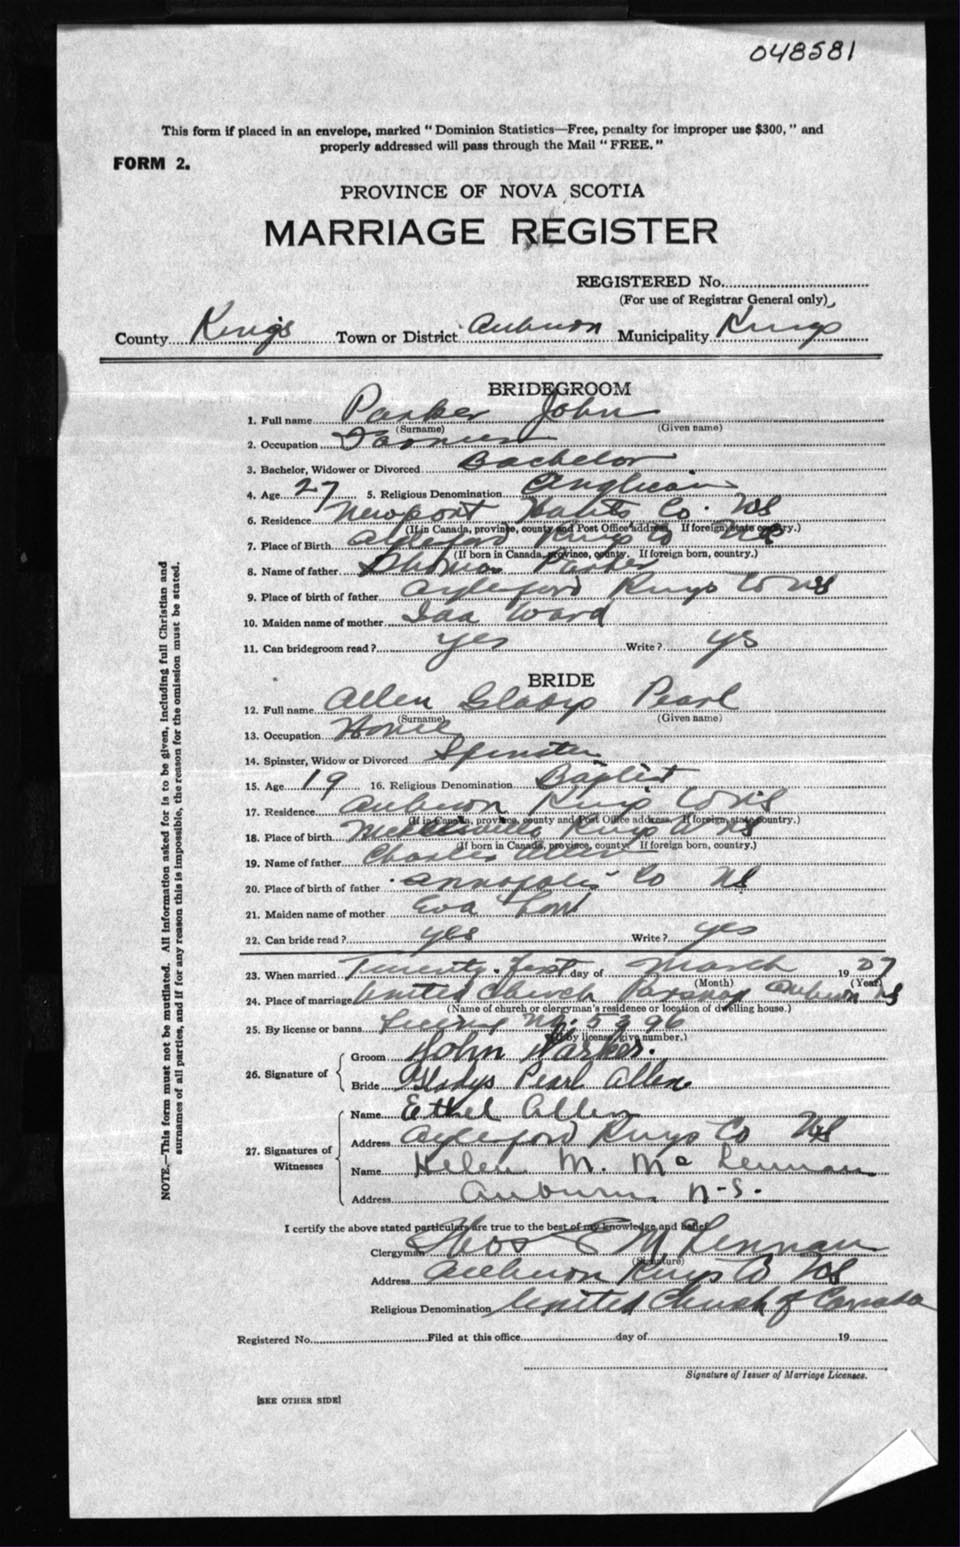 048581
This form if placed in an envelope, marked "Dominion Statistics—Free, penalty for improper use $300," and
properly addressed will pass through the Mail "FREE."
FORM 2.
PROVINCE OF NOVA SCOTIA
MARRIAGE REGISTER
REGISTERED No.
(For use of Registrar General only)
County Kings Town or District Auburn Municipality Kings
BRIDEGROOM
1. Full name Parker John
(Surname) (Given name)
2. Occupation Farmer
3. Bachelor, Widower or Divorced Bachelor
4. Age 27 5. Religious Denomination Anglican
6. Residence Newport Hants Co. NS
(If in Canada, province, county and Post Office address. If foreign, state country.)
7. Place of Birth Aylesford Kings Co NS
(If born in Canada, province, county. If foreign born, country.)
8. Name of father Parker
9. Place of birth of father Aylesford Kings Co NS
10. Maiden name of mother Ida Ward
11. Can bridegroom read? yes Write? ys
BRIDE
12. Full name Allen Gladys Pearl
(Surname) (Given name)
13. Occupation Home
14. Spinster, Widow or Divorced Spinster
15. Age 19 16. Religious Denomination Baptist
17. Residence Auburn Kings Co NS
(If in Canada, province, county and Post Office address. If foreign, state country.)
18. Place of birth Kings Co NS
(If born in Canada, province, county. If foreign born, country.)
19. Name of father Charles Allen
20. Place of birth of father Annapolis Co NS
21. Maiden name of mother Eva
22. Can bride read? yes Write? yes
23. When married Twenty first day of March 19
(Month) (Year)
24. Place of marriage United Church Auburn NS
(Name of church or clergyman's residence or location of dwelling house.)
25. By license or banns License No. 5396
(If by license, give number.)
26. Signature of
Groom John Parker.
Bride Gladys Pearl Allen
27. Signatures of Witnesses
Name Ethel Allen
Address Aylesford Kings Co NS
Name Helen M. McLennan
Address Auburn N.S.
I certify the above stated particulars are true to the best of my knowledge and belief.
Clergyman Thos E McLennan
(Signature)
Address Auburn Kings Co NS
Religious Denomination United Church of Canada
Registered No. Filed at this office day of 19
Signature of Issuer of Marriage Licenses.
[SEE OTHER SIDE]
NOTE.—This form must not be mutilated. All information asked for is to be given, including full Christian and
surnames of all parties, and if for any reason this is impossible, the reason for the omission must be stated.